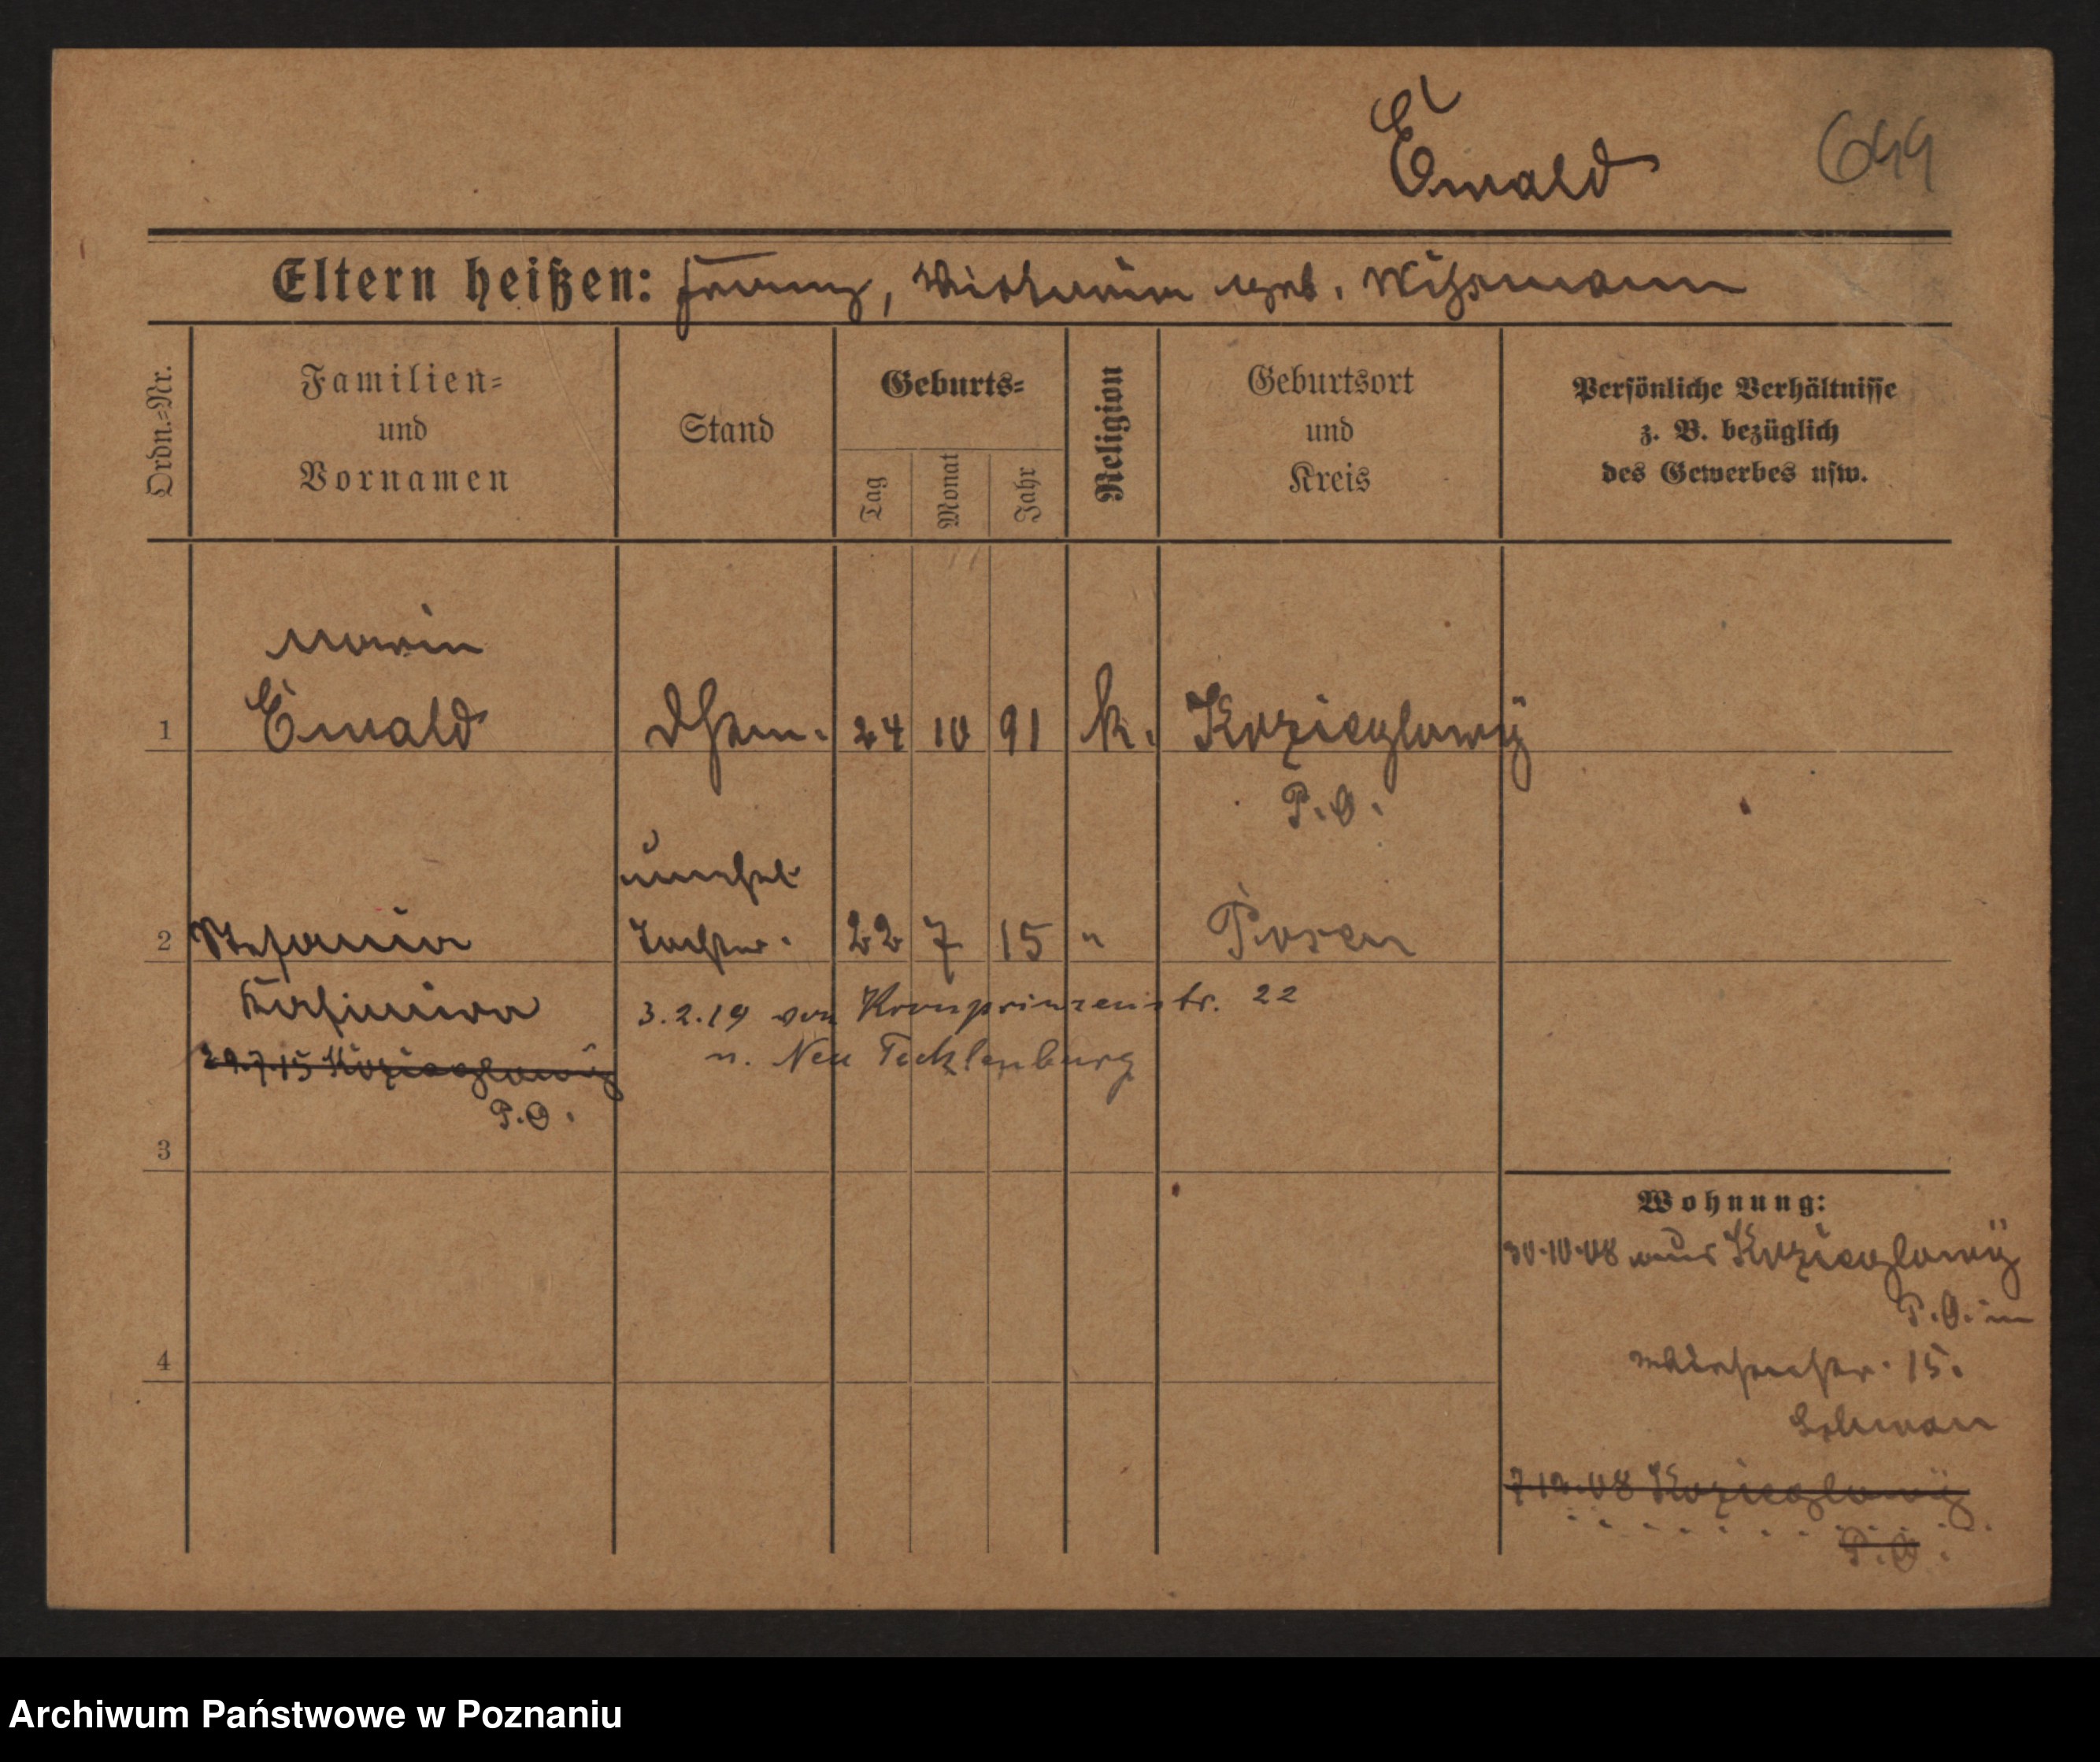 Ewald
644
Eltern heißen: Franz, Viktoria geb. Wißmann
Ordn.=Nr.
Familien=
und
Vornamen
Stand
Geburts=
Tag
Monat
Jahr
Religion
Geburtsort
und
Kreis
Persönliche Verhältnisse
z. B. bezüglich
des Gewerbes usw.
Maria
1 Ewald 24 10 91 k. Kozieglowy
P.O.
unehel.
2 Stefania Tochter. 22 7 15 " Posen
Kasimira
3.2.19 von Kronprinzenstr. 22
29.7.15 Kozieglowy
n. Neu Tecklenburg
P.O.
3
4
Wohnung:
30.10.08 aus Kozieglowy
P.O. in
15.
7.12.08 Kozieglowy
P.O.
Archiwum Państwowe w Poznaniu